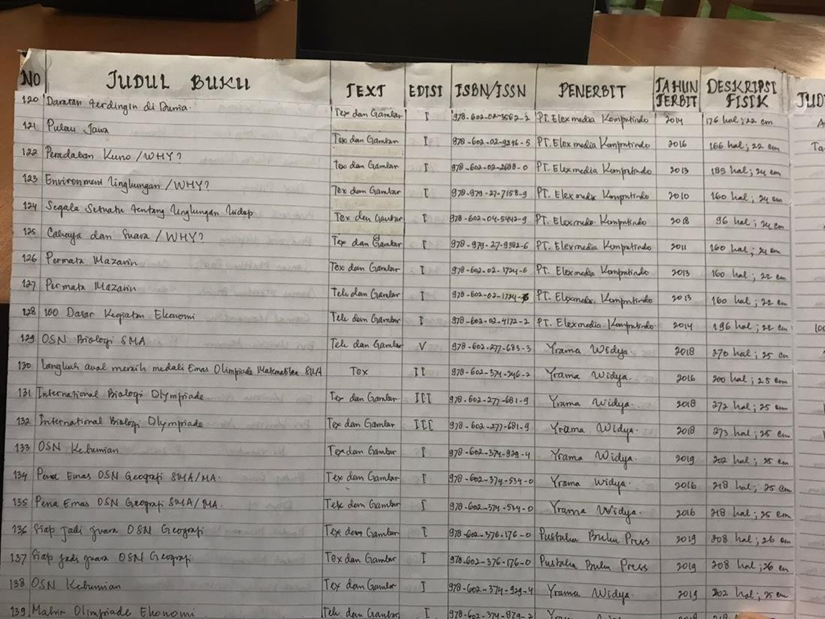 NO JUDUL BUKU TEXT EDISI ISBN/ISSN PENERBIT TAHUN TERBIT DESKRIPSI FISIK JUD
120 Daratan terdingin di Dunia Tex dan Gambar I PT. Elexmedia Komputindo 2014 176 hal; 22 cm
121 Pulau Jawa Tex dan Gambar I 978-602-02-9246-5 PT. Elex media Komputindo 2016 166 hal; 22 cm
122 Peradaban Kuno /WHY? Tex dan Gambar I 978-602-02-2688-0 PT. Elexmedia Komputindo 2013 hal; 24 cm
123 Environment lingkungan /WHY? Tex dan Gambar I 978-979-27-7158-9 PT. Elex media Komputindo 2010 160 hal; 24 cm
124 Segala Sesuatu tentang lingkungan hidup Tex dan Gambar I 978-602-04-5442-9 PT. Elexmedia Komputindo 2018 96 hal; 24 cm
125 Cahaya dan Suara /WHY? Tex dan Gambar I PT. Elexmedia Komputindo 2011 160 hal; 24 cm
126 Permata Mazarin Tex dan Gambar I 978-602-02-1724-6 PT. Elexmedia Komputindo 2013 160 hal; 22 cm
127 Permata Mazarin Tek dan Gambar I PT. Elexmedia Komputindo 2013 160 hal; 22 cm
128 100 Dasar Kegiatan Ekonomi Tek dan Gambar I 978-602-02-4172-2 PT. Elexmedia Komputindo 2014 196 hal; 22 cm
129 OSN Biologi SMA Tek dan Gambar V 978-602-277-683-3 Yrama Widya 2018 270 hal; 25 cm
130 Langkah awal meraih medali Emas Olimpiade Matematika SMA Tex II 978-602-374-246-2 Yrama Widya. 2016 200 hal; 25 cm
131 International Biologi Olympiade Tex dan Gambar III 978-602-277-681-9 Yrama Widya. 2018 272 hal; 25 cm
132 International Biologi Olympiade Tex dan Gambar III 978-602-277-681-9 Yrama Widya. 2018 273 hal; 25 cm
133 OSN Kebumian Tex dan Gambar I 978-602-374-929-4 Yrama Widya. 2019 202 hal; 25 cm
134 Pena Emas OSN Geografi SMA/MA. Tex dan Gambar I 978-602-374-524-0 Yrama Widya. 2016 218 hal; 25 cm
135 Pena Emas OSN Geografi SMA/MA Tek dan Gambar I 978-602-374-524-0 Yrama Widya. 2016 218 hal; 25 cm
136 Siap Jadi Juara OSN Geografi Tex dan Gambar I 978-602-376-176-0 Pustaka Press 2019 208 hal; 26 cm
137 Siap jadi juara OSN Geografi Tex dan Gambar I 978-602-376-176-0 Pustaka Press 2019 208 hal; 26 cm
138 OSN Kebumian Tex dan Gambar I 978-602-374-929-4 Yrama Widya. 2019 202 hal; 25 cm
139 Mahir Olimpiade Ekonomi Tek dan Gambar I